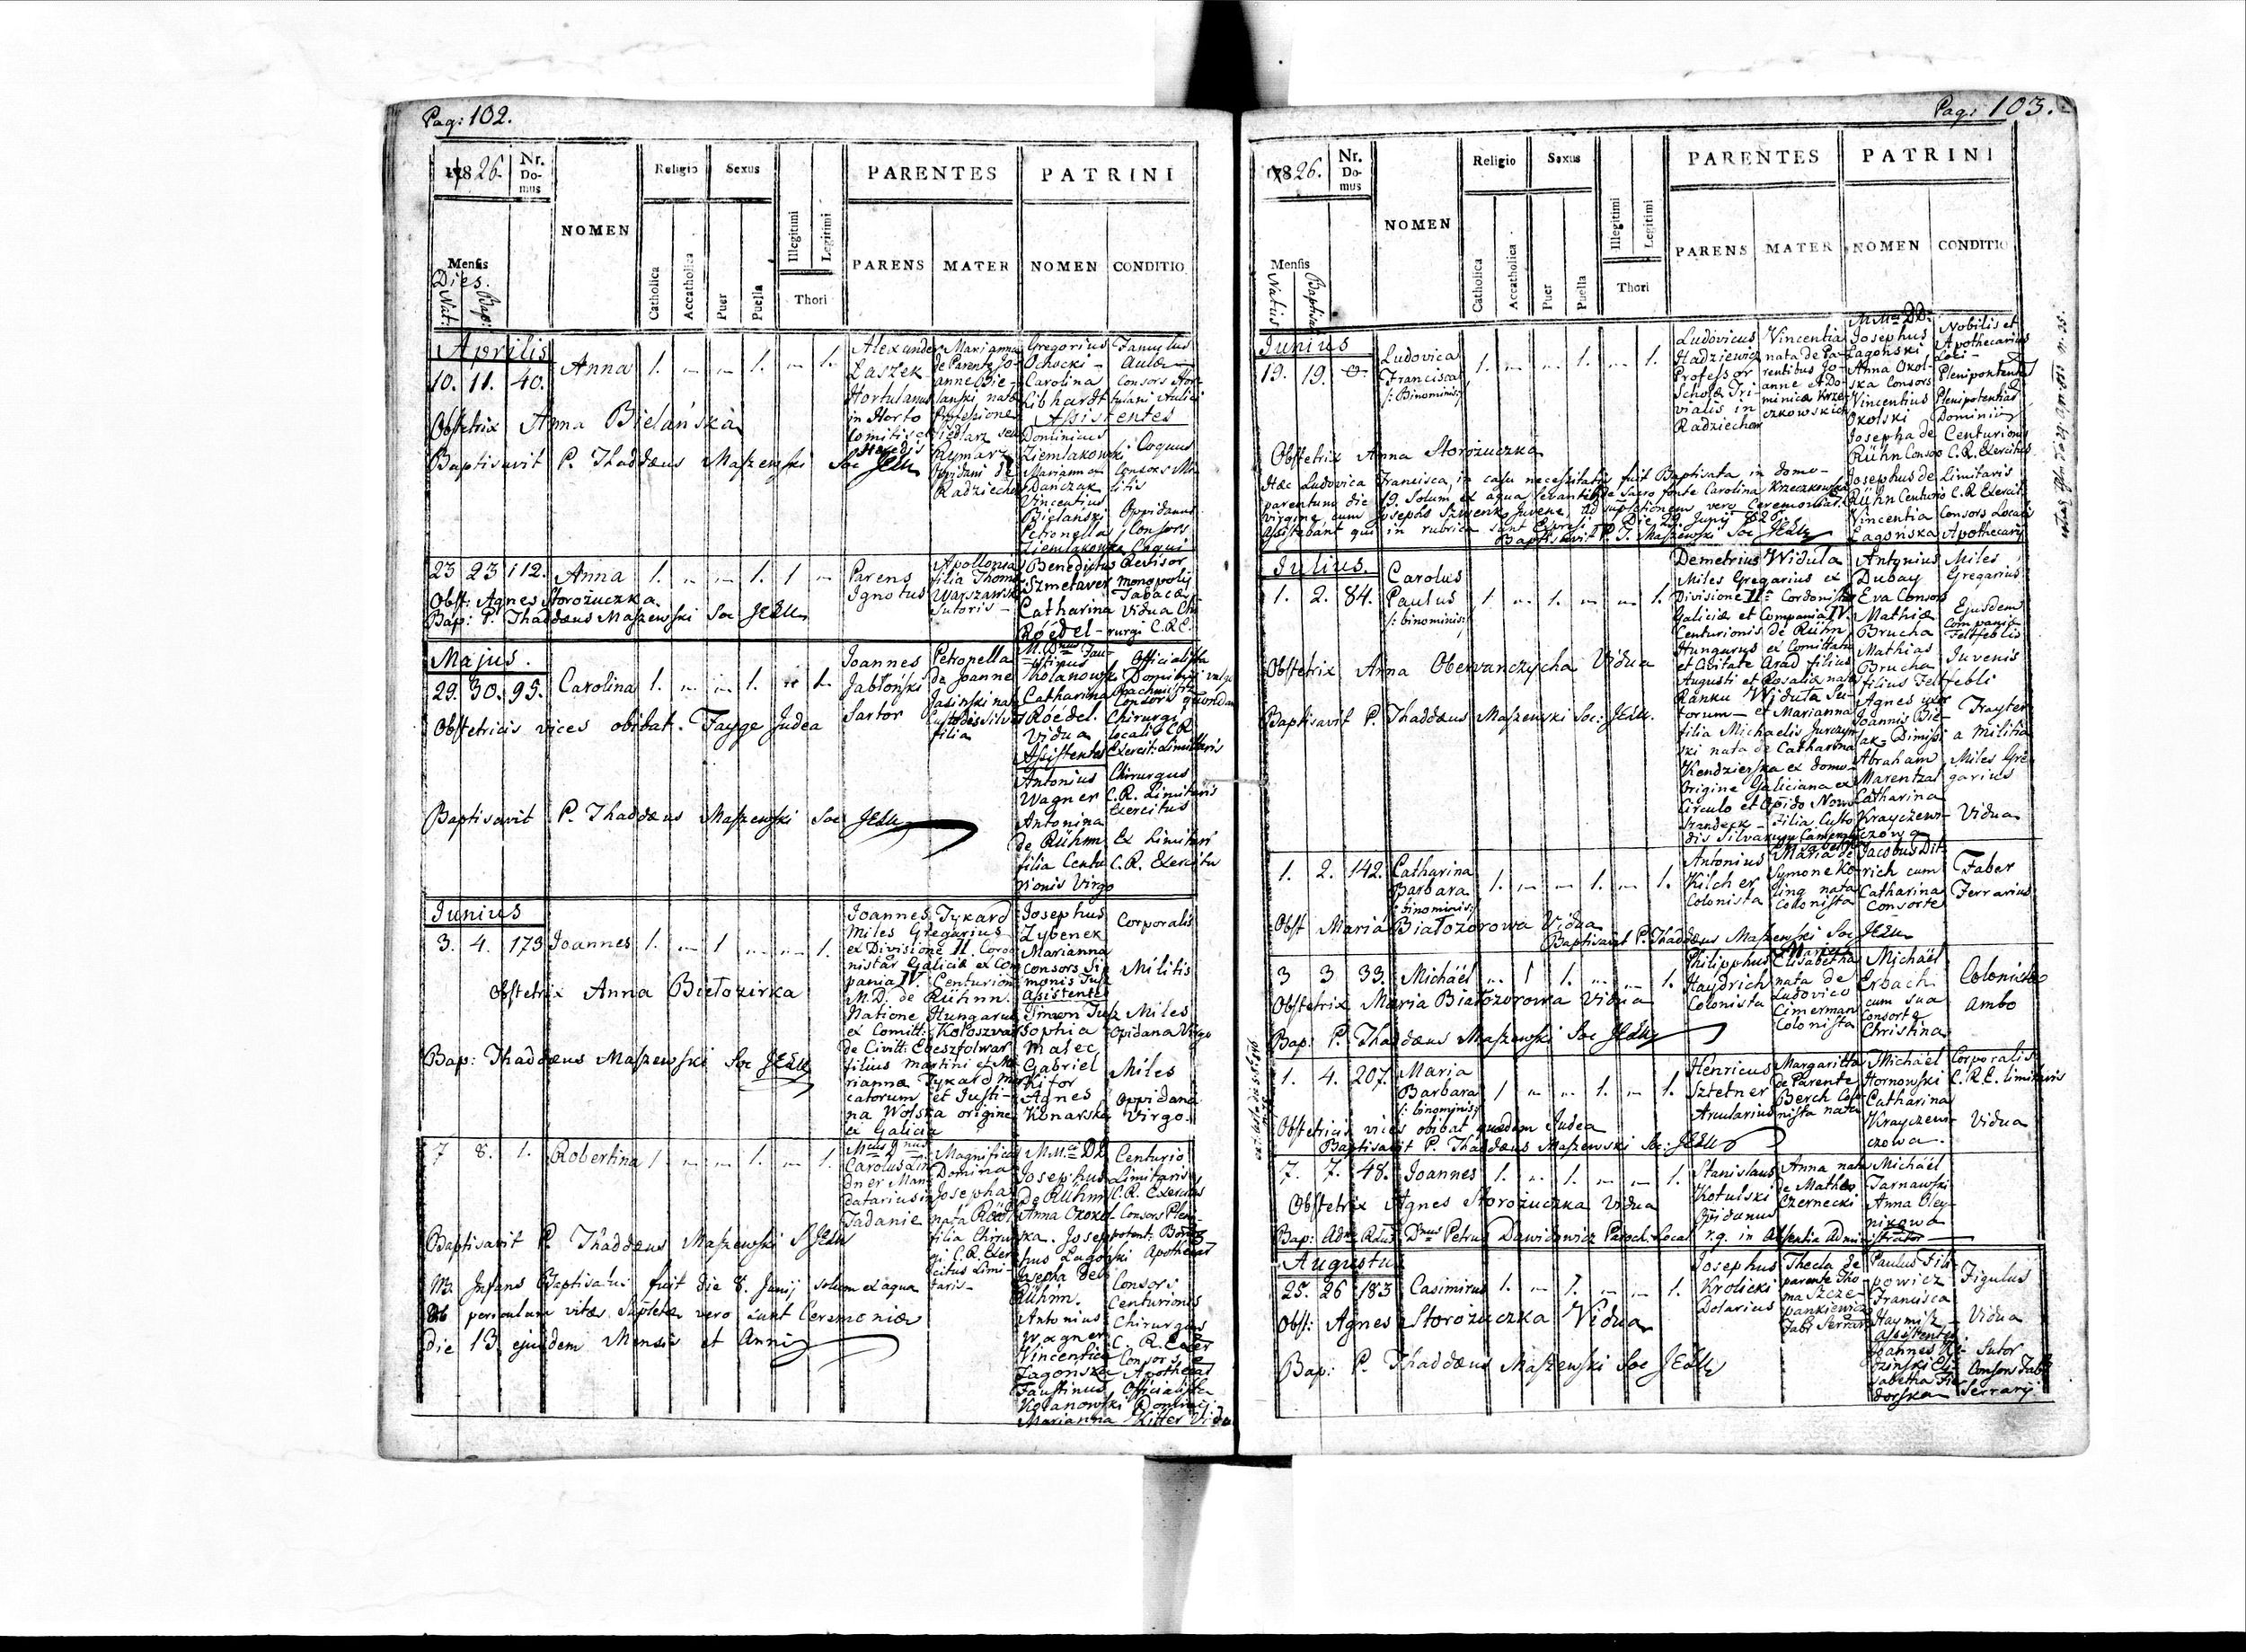 Pag: 102.
1826.
Nr. Do- mus
NOMEN
Religio
Sexus
Illegitimi
Legitimi
PARENTES
PATRINI
Mensis
Dies.
Nat:
Bap:
Catholica
Accatholica
Puer
Puella
Thori
PARENS
MATER
NOMEN
CONDITIO
Aprilis
10. 11. 40. Anna 1. 1. 1.
Alexander
Laszek
Hortulanus
in Horto
Comitis
Marianna
de Parente Jo-
anne Bie-
lanski nata
Professione
Siedlarz seu
Rymarz
Oppidani de
Radziechow
Gregorius
Ochocki
Carolina
Libhardt
Assistentes
Dominicus
Ziemlakowski
Marianna
Danczak
Vincentius
Bielanski
Petronella
Ziemlakowska
Famulus
Aulæ
Consors Hor-
tulani Aulici
Coquus
Consors Mi-
litis
Oppidanus
Consors
Coqui
Obstetrix Anna Bielańska
Baptisavit P. Thaddæus Maszewski Soc JEsu
23 23 112. Anna 1. 1. 1
Parens
Ignotus
Apollonia
filia Thomæ
Warszawski
Sutoris
Benedictus
Szmetaver
Catharina
Róédel
Revisor
monopolij
Tabacæ
Vidua Chi-
rurgi C.R.E.
Obst: Agnes Storożuczka
Bap: P. Thaddæus Maszewski Soc JEsu
Majus.
29. 30. 95. Carolina 1. 1. 1.
Joannes
Jabłoński
Sartor
Petronella
de Joanne
Jasinski nata
Custodis Silvæ
filia
M. Dnus Fau-
stinus
Kolanowski
Catharina
Róédel.
Vidua
Assistentes
Antonius
Wagner
Antonina
de Rühm
filia Centu-
rionis Virgo
Officialista
Dominij
Consors quondam
Chirurgi
localis C.R.
Exercit: Limitaris
Chirurgus
C.R. Limitaris
Exercitus
Ex Limitari
C.R. Exercitu
Obstetricis vices obibat. Fayge Judea
Baptisavit P. Thaddæus Maszewski Soc JEsu
Junius
3. 4. 173 Joannes 1. 1 1.
Joannes Tykard
Miles Gregarius
ex Divisione II. Cordo
nistar Galiciæ ex Com
pania IV. Centurion
M.D. de Rühm.
Natione Hungarus
ex Comitt: Kołoszvar
de Civitt:
filius Martini et Ma
rianna Tykard
et Justi-
na Wolska origine
ex Galicia
Josephus
Zybenek
Marianna
Consors Si
monis Tusz
Assistentes
Simeon Tusz
Sophia
Malec
Gabriel
Kifor
Agnes
Konarska
Corporalis
Militis
Miles
Opidana Virgo
Miles
Oppidana
Virgo.
Obstetrix Anna Białozirka
Bap: Thaddæus Maszewski Soc JEsu
7 8. 1. Robertina 1 1. 1.
Carolus Lin
dner Man-
datarius in
Tadanie
Magnifica
Domina
Josepha
nata Röed.
filia Chirur
gi C.R. Exer
citus Limi-
taris
M.M. DD
Josephus
De Rühm
Anna Okol-
ska. Josep
hus Lagonski
Josepha de
Rühm.
Antonius
Wagner
Vincentia
Lagonska
Faustinus
Kolanowski
Marianna
Centurio
Limitaris
C.R. Exercitus
Consors Pleni-
potent: Bon
Apothecar
Consors
Centurionis
Chirurgus
C. R. Exer
Consors
Apothecar
Officialista
Dominij
Kitter Vidua
Baptisavit P. Thaddæus Maszewski S JEsu
NB Infans Baptisatus fuit die 8. Junij solum ex aqua
Ob periculum vitæ. Supletæ vero sunt Ceremoniæ
die 13 ejusdem Mensis et Anni
Pag: 103.
1826.
Nr. Do- mus
NOMEN
Religio
Sexus
Illegitimi
Legitimi
PARENTES
PATRINI
Mensis
Natus
Baptisat
Catholica
Accatholica
Puer
Puella
Thori
PARENS
MATER
NOMEN
CONDITIO
Junius
19. 19. 0.
Ludovica
Francisca
/: Binominis:/
1. 1. 1.
Ludovicus
Hadziewicz
Professor
Scholæ Tri-
vialis in
Radziechow
Vincentia
nata de Pa-
rentibus Jo-
anne et Do-
minica Krze-
czkowskich
DD:
Josephus
Lagoński
Anna Okol-
ska Consors
Vincentius
Okolski
Josepha de
Rühn Consors
Josephus de
Rühn Centurio
Vincentia
Lagońska
Nobilis et
Apothecarius
Loci
Plenipotentis
Plenipotentias
Dominij
Centurionis
C.R. Exercitus
Limitaris
C.R. Exercit.
Consors Localis
Apothecarij
Obstetrix Anna Storożuczka
Hæc Ludovica Francisca, in casu necessitatis fuit Baptisata in domo
parentum die 19 Solum ex aqua levantib: de Sacro fonte Carolina Krzeczkowska
Virgine, cum Josepho Szwenk Juvene, ad supletionem vero Ceremoniar:
assistabant qui in rubrica sunt Expresi. Die 29 Junij 1826.
Baptisavit P. T. Maszewski Soc JEsu
Julius.
1. 2. 84.
Carolus
Paulus
/: binominis:/
1. 1. 1.
Demetrius Widuta
Miles Gregarius ex
Divisione IIæ Cordonistar
Galiciæ et Compania IV.
Centurionis de Rühm
Hungarus ex Comittatu
et Civitate Arad filius
Augusti et Rosaliæ nata
Ranku Widuta Su-
torum et Marianna
filia Michaelis Jurczyn
ski nata de Catharina
Kendzierska ex domo
Origine Galiciana ex
Circulo et Opido Nowo
Sandeck Filia Custo
dis Silvarum
Antonius
Dubay
Eva Consors
Mathiæ
Brucha
Mathias
Brucha
filius Feltfebli
Agnes uxor
Joannis Bie-
lak Dimissi
Abraham
Marentzal
Catharina
Krayczew-
czowa
Miles
Gregarius
Ejusdem
Companiæ
Feltfeblis
Juvenis
Frayter
a Militia
Miles Gre-
garius
Vidua
Obstetrix Anna Oberwanczycha Vidua
Baptisavit P. Thaddæus Maszewski Soc: JEsu.
1. 2. 142.
Catharina
Barbara
/:binominis:/
1. 1. 1.
Antonius
Kilcher
Colonista
Maria de
Symone Ko-
ling nata
Colonista
Jacobus Dit-
rich cum
Catharina
Consorte
Faber
Ferrarius
Obst Maria Białozorowa Vidua
Baptisavit P. Thaddæus Maszewski Soc JEsu
3 3 33. Michäel 1 1. 1.
Philipphus
Haydrich
Colonista
Elisabetha
nata de
Ludovico
Cimerman
Colonista
Michäel
Erbach
cum sua
Consorte
Christina
Colonistæ
ambo
Obstetrix Maria Białozorowa Vidua
Bap: P. Thaddæus Maszewski Soc JEsu
1. 4. 207.
Maria
Barbara
/: binominis:/
1 1. 1.
Henricus
Sztetner
Arcularius
Margaritta
de Parente
Berch Colo-
nista nata
Michäel
Hornowski
Catharina
Krayczew-
czowa.
Corporalis
C.R.E. limitaris
Vidua
Obstetricis vices obibat quædam Judea
Baptisavit P. Thaddæus Maszewski Soc: JEsu
7. 7. 48. Joannes 1. 1. 1.
Stanislaus
Kotulski
Opidanus
Anna nata
de Matheo
Czernecki
Michäel
Tarnawski
Anna Oley-
nikowa
Obstetrix Agnes Storożuczka Vidua
Bap: Adm Rdus Dnus Petrus Dawidowicz Paroch: Local r.g. in Absentia Administrator
Augustus
25. 26 183 Casimirus 1. 1. 1.
Josephus
Krolicki
Dolarius
Thecla de
parente Tho-
ma Szcze-
pankiewicz
Fabr Serrar
Paulus Fili-
powicz
Francisca
Haymisz
Assistentes
Joannes
Eli-
sabetha
Figulus
Vidua
Sutor
Consors Fabr
Serrarij
Obst: Agnes Storożuczka Vidua
Bap: P. Thaddæus Maszewski Soc JEsu